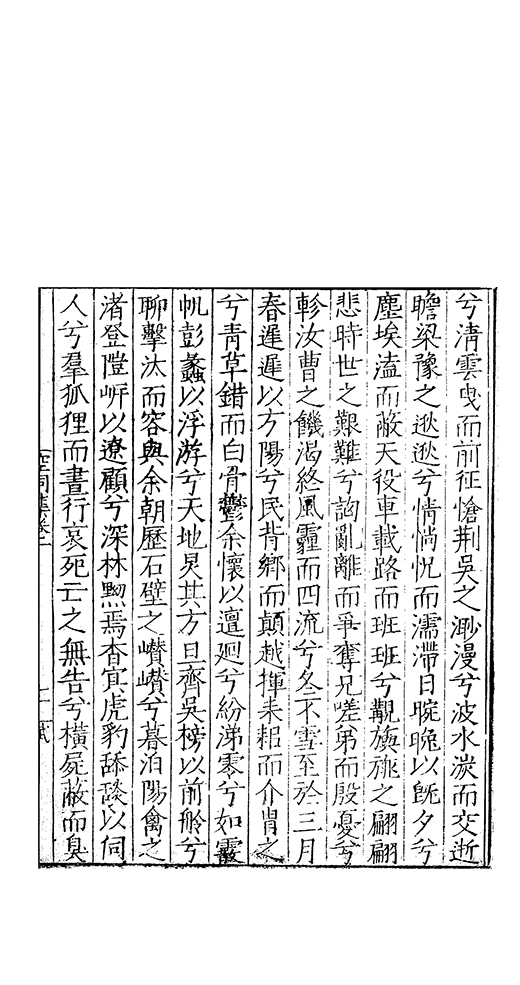 兮淸雲曳而前征愴荆吴之渺漫兮波水淼而交逝
瞻梁豫之逖逖兮情惝怳而濡滯日晼晚以旣夕兮
塵埃溘而蔽天役車載路而班班兮覩旗旐之翩翩
悲時世之艱難兮詢亂離而爭奪兄嗟弟而殷憂兮
軫汝曹之饑渴終風霾而四流兮冬不雪至於三月
春遲遲以方陽兮民背鄉而顛越揮耒耜而介冑之
兮青草錯而白骨鬱余懷以邅廻兮紛涕零兮如霰
帆彭蠡以浮游兮天地炅其方旦齊吴榜以前舲兮
聊擊汰而容與余朝歷石壁之巑巑兮暮泊陽禽之
渚登隥㟁以遼顧兮深林黝焉杳㝠虎豹舑舕以伺
人兮羣狐狸而晝行哀死亡之無告兮横屍蔽而臭
空同集卷一
十一 貳